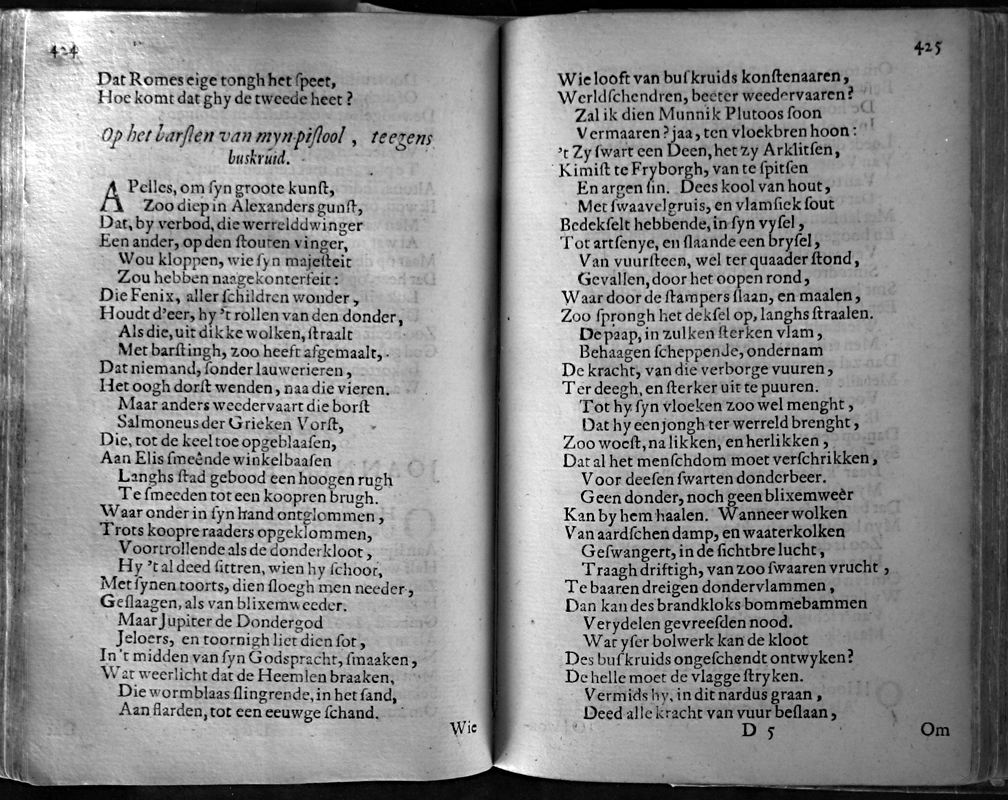 424
Dat Romes eige tongh het ſpeet,
Hoe komt dat ghy de tweede heet?
Op het barſten van myn piſtool, teegens
buskruid.
APelles, om ſyn groote kunſt,
Zoo diep in Alexanders gunſt,
Dat, by verbod, die werrelddwinger
Een ander, op den ſtouten vinger,
Wou kloppen, wie ſyn majeſteit
Zou hebben naagekonterfeit:
Die Fenix, aller ſchildren wonder,
Houdt d'eer, hy 't rollen van den donder,
Als die, uit dikke wolken, ſtraalt
Met barſtingh, zoo heeft afgemaalt,
Dat niemand, ſonder lauwerieren,
Het oogh dorſt wenden, naa die vieren.
Maar anders weedervaart die borſt
Salmoneus der Grieken Vorſt,
Die, tot de keel toe opgeblaaſen,
Aan Elis ſmeênde winkelbaaſen
Langhs ſtad gebood een hoogen rugh
Te ſmeeden tot een koopren brugh.
Waar onder in ſyn hand ontglommen,
Trots koopre raaders opgeklommen,
Voortrollende als de donderkloot,
Hy 't al deed ſittren, wien hy ſchoot,
Met ſynen toorts, dien ſloegh men needer,
Geſlaagen, als van blixemweeder.
Maar Jupiter de Dondergod
Jeloers, en toornigh liet dien ſot,
In't midden van ſyn Godspracht, ſmaaken,
Wat weerlicht dat de Heemlen braaken,
Die wormblaas ſlingrende, in het ſand,
Aan flarden, tot een eeuwge ſchand.
Wie
425
Wie looft van buſkruids konſtenaaren,
Werldſchendren, beeter weedervaaren?
Zal ik dien Munnik Plutoos ſoon
Vermaaren? jaa, ten vloekbren hoon:
't Zy ſwart een Deen, het zy Arklitſen,
Kimiſt te Fryborgh, van te ſpitſen
En argen ſin. Dees kool van hout,
Met ſwaavelgruis, en vlamſiek ſout
Bedekſelt hebbende, in ſyn vyſel,
Tot artſenye, en ſlaande een bryſel,
Van vuurſteen, wel ter quaader ſtond,
Gevallen, door het oopen rond,
Waar door de ſtampers ſlaan, en maalen,
Zoo ſprongh het dekſel op, langhs ſtraalen.
De paap, in zulken ſterken vlam,
Behaagen ſcheppende, ondernam
De kracht, van die verborge vuuren,
Ter deegh, en ſterker uit te puuren.
Tot hy ſyn vloeken zoo wel menght,
Dat hy een jongh ter werreld brenght,
Zoo woeſt, na likken, en herlikken,
Dat al het menſchdom moet verſchrikken,
Voor deeſen ſwarten donderbeer.
Geen donder, noch geen blixemweêr
Kan by hem haalen. Wanneer wolken
Van aardſchen damp, en waaterkolken
Geſwangert, in de ſichtbre lucht,
Traagh driftigh, van zoo ſwaaren vrucht,
Te baaren dreigen dondervlammen,
Dan kan des brandkloks bommebammen
Verydelen gevreeſden nood.
War yſer bolwerk kan de kloot
Des buſkruids ongeſchendt ontwyken?
De helle moet de vlagge ſtryken.
Vermids hy, in dit nardus graan,
Deed alle kracht van vuur beſlaan,
D 5
Om